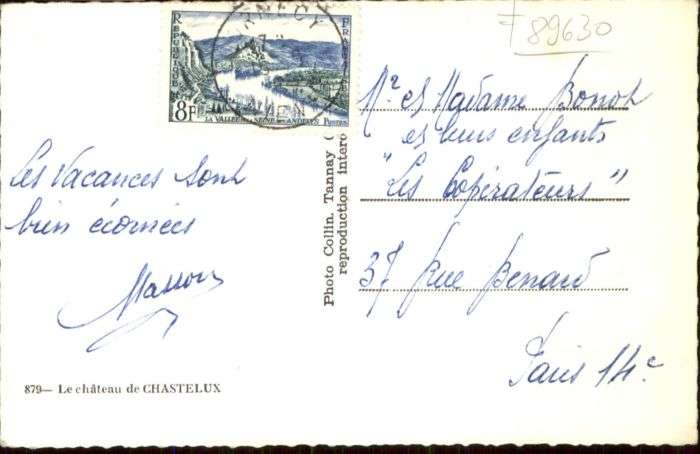 89630
REPUBLIQUE
FRANCAISE
8F
LA VALLEE DE LA SEINE AUX ANDELYS
POSTES
Les Vacances sont
bien écornées
Masson
879— Le château de CHASTELUX
Photo Collin. Tannay (
reproduction interd
Mr et Madame Bonot
et leurs enfants
"Les Copérateurs"
37 Rue Benard
Paris 14e